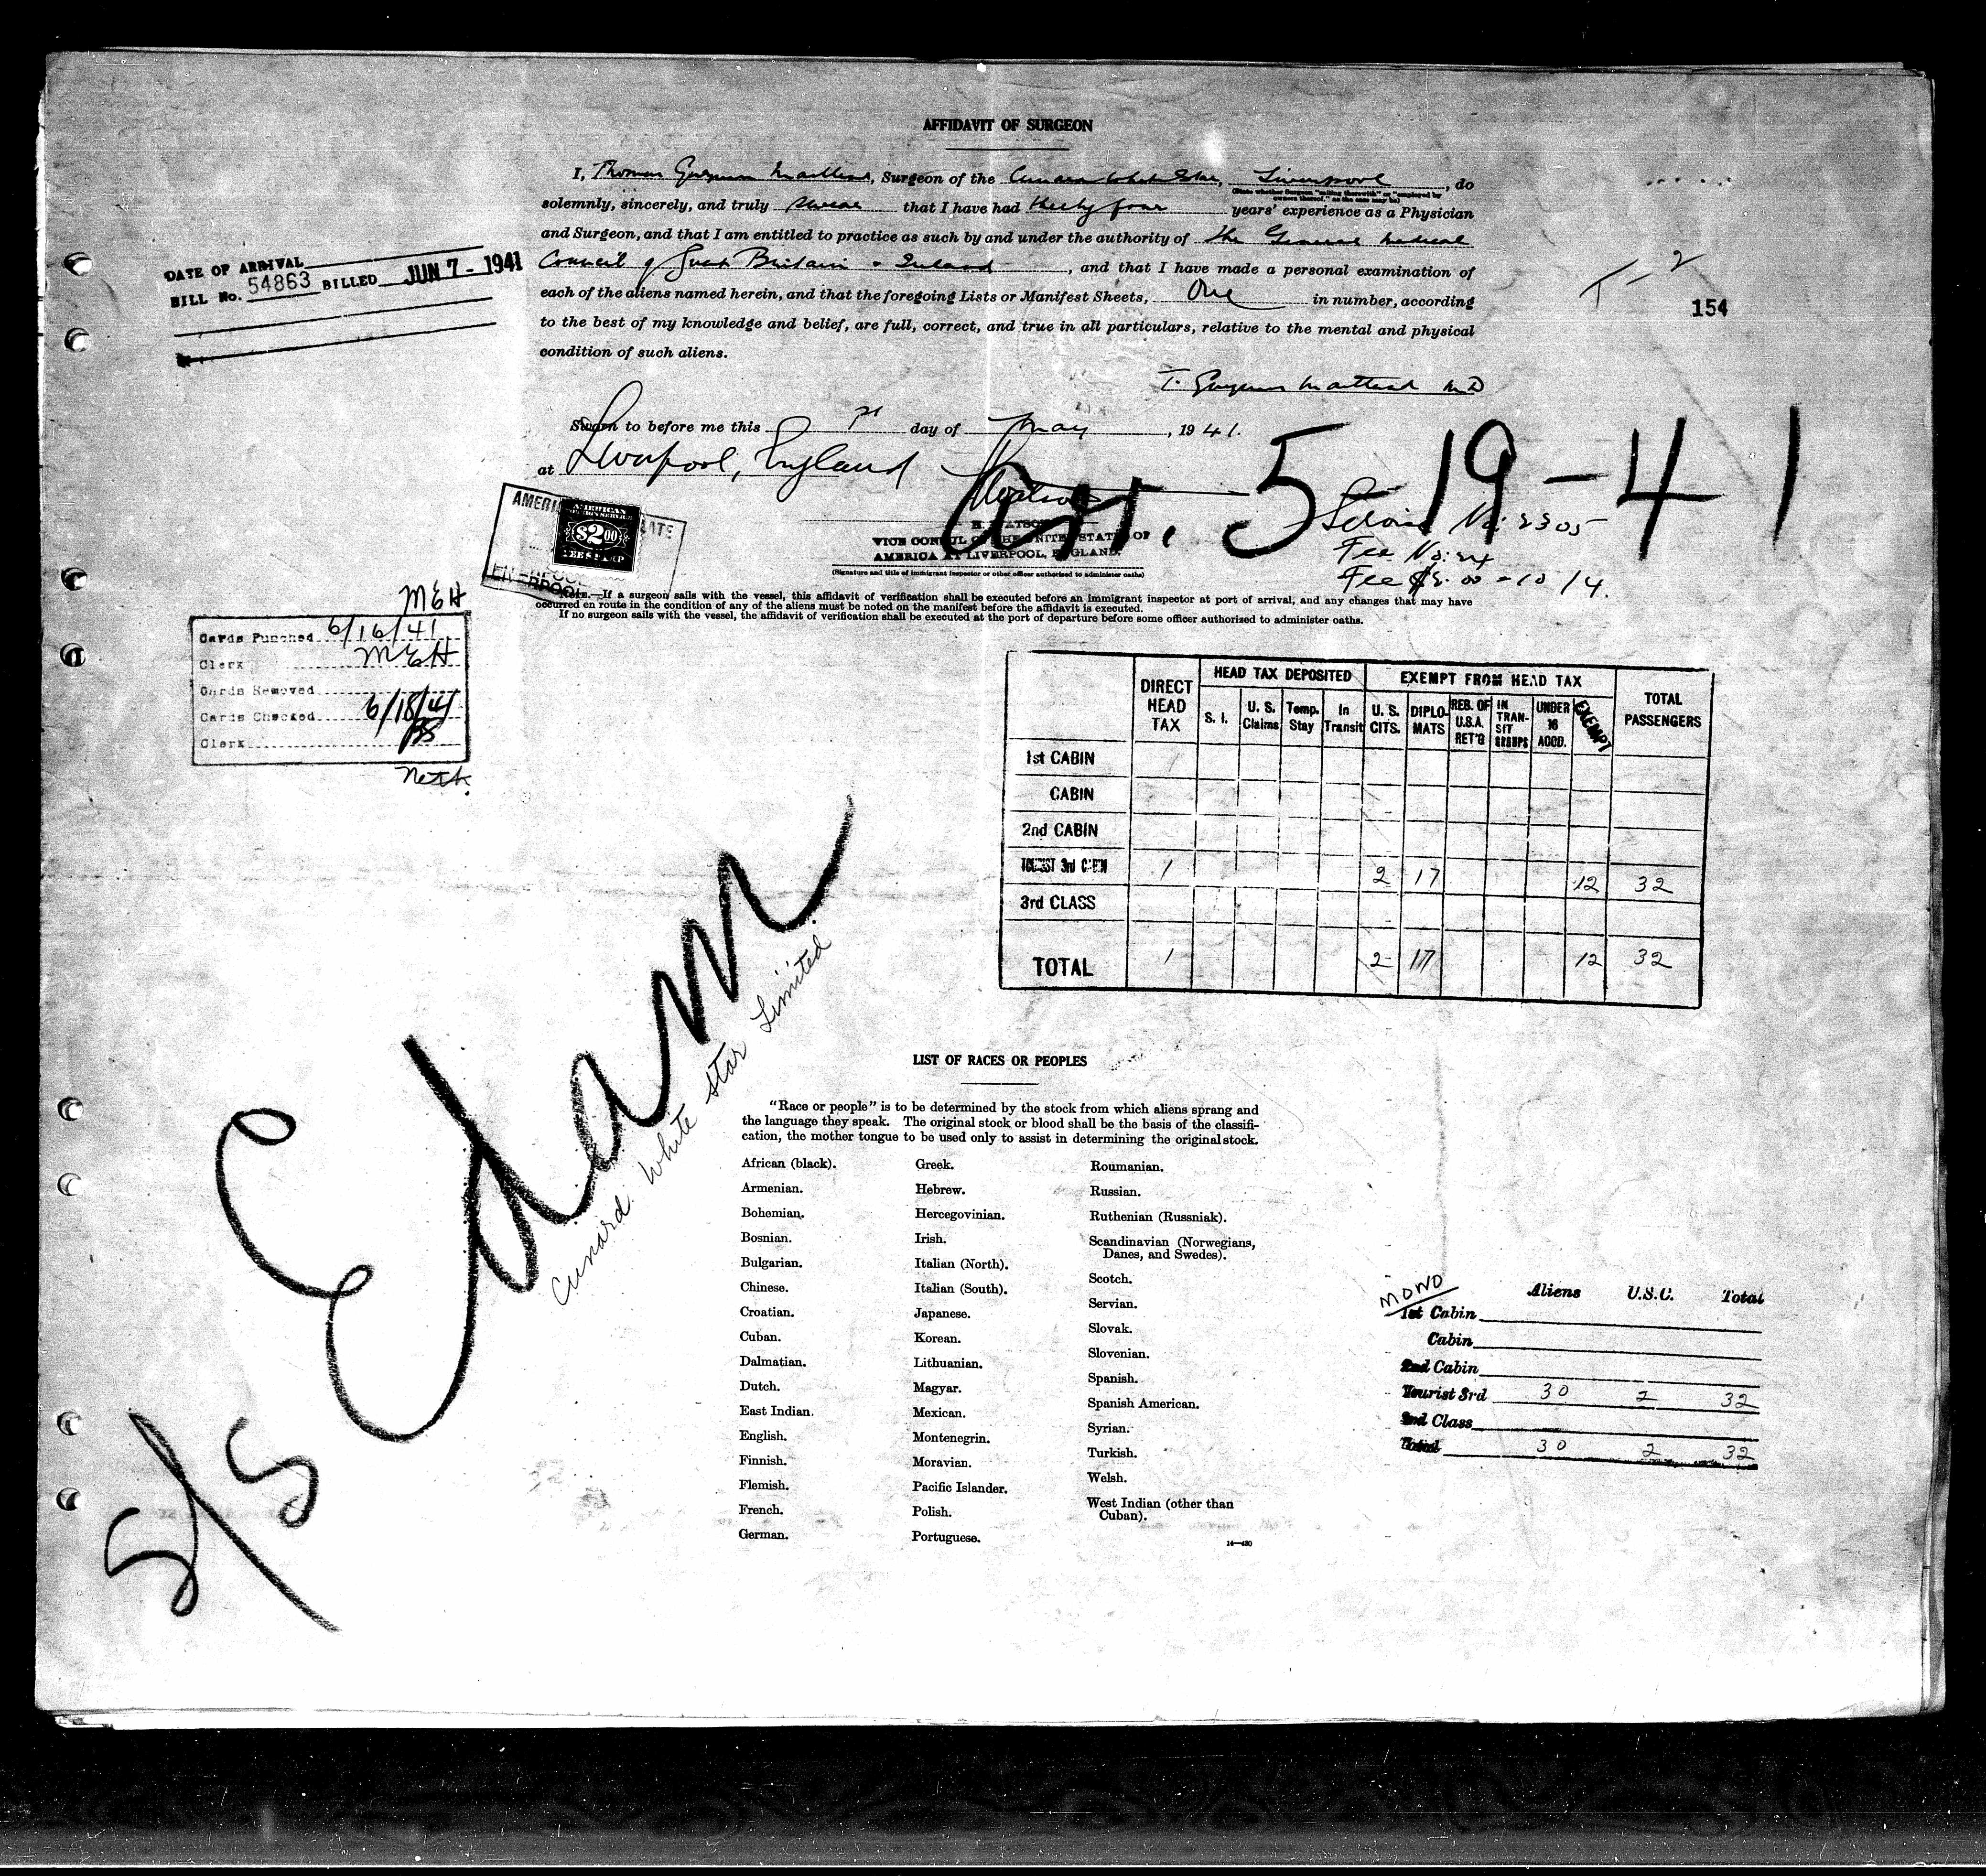 AFFIDAVIT OF SURGEON
I, Thomas Maitland, Surgeon of the Cunard White Star, Liverpool, do
(State whether Surgeon "sailing therewith" or "employed by owners thereof," as the case may be)
solemnly, sincerely, and truly swear that I have had thirty four years' experience as a Physician
and Surgeon, and that I am entitled to practice as such by and under the authority of the General Medical
Council of Great Britain & Ireland, and that I have made a personal examination of
each of the aliens named herein, and that the foregoing Lists or Manifest Sheets, One in number, according
to the best of my knowledge and belief, are full, correct, and true in all particulars, relative to the mental and physical
condition of such aliens.
DATE OF ARRIVAL
BILL No. 54863 BILLED JUN 7 - 1941
T-2
154
T. Maitland M.D
Sworn to before me this 1st day of May, 1941.
at Liverpool, England
Watson
Arr. 5-19-41
H. WATSON
VICE CONSUL OF THE UNITED STATES OF
AMERICA AT LIVERPOOL, ENGLAND.
(Signature and title of immigrant inspector or other officer authorized to administer oaths)
Service No: 2305
Fee No:
Fee 10/4.
AMERICAN
FOREIGN SERVICE
$2.00
FEE STAMP
LIVERPOOL
NOTE.—If a surgeon sails with the vessel, this affidavit of verification shall be executed before an immigrant inspector at port of arrival, and any changes that may have
occurred en route in the condition of any of the aliens must be noted on the manifest before the affidavit is executed.
If no surgeon sails with the vessel, the affidavit of verification shall be executed at the port of departure before some officer authorized to administer oaths.
MEH
Cards Punched 6/16/41
Clerk MEH
Cards Removed
Cards Checked 6/18/41
Clerk
DIRECT HEAD TAX
HEAD TAX DEPOSITED
EXEMPT FROM HEAD TAX
TOTAL PASSENGERS
S. I. U. S. Claims Temp. Stay In Transit U. S. CITS. DIPLOMATS RES. OF U.S.A. RET'G IN TRANSIT GROUPS UNDER 16 ACCD. EXEMPT
1st CABIN
CABIN
2nd CABIN
TOURIST 3rd CABIN 1 2 17 12 32
3rd CLASS
TOTAL 1 2 17 12 32
S/S Edam
Cunard White Star Limited
LIST OF RACES OR PEOPLES
"Race or people" is to be determined by the stock from which aliens sprang and
the language they speak. The original stock or blood shall be the basis of the classifi-
cation, the mother tongue to be used only to assist in determining the original stock.
African (black).
Armenian.
Bohemian.
Bosnian.
Bulgarian.
Chinese.
Croatian.
Cuban.
Dalmatian.
Dutch.
East Indian.
English.
Finnish.
Flemish.
French.
German.
Greek.
Hebrew.
Hercegovinian.
Irish.
Italian (North).
Italian (South).
Japanese.
Korean.
Lithuanian.
Magyar.
Mexican.
Montenegrin.
Moravian.
Pacific Islander.
Polish.
Portuguese.
Roumanian.
Russian.
Ruthenian (Russniak).
Scandinavian (Norwegians,
Danes, and Swedes).
Scotch.
Servian.
Slovak.
Slovenian.
Spanish.
Spanish American.
Syrian.
Turkish.
Welsh.
West Indian (other than
Cuban).
14—430
MOND
Aliens U.S.C. Total
1st Cabin
Cabin
2nd Cabin
Tourist 3rd 30 2 32
2nd Class
Total 30 2 32